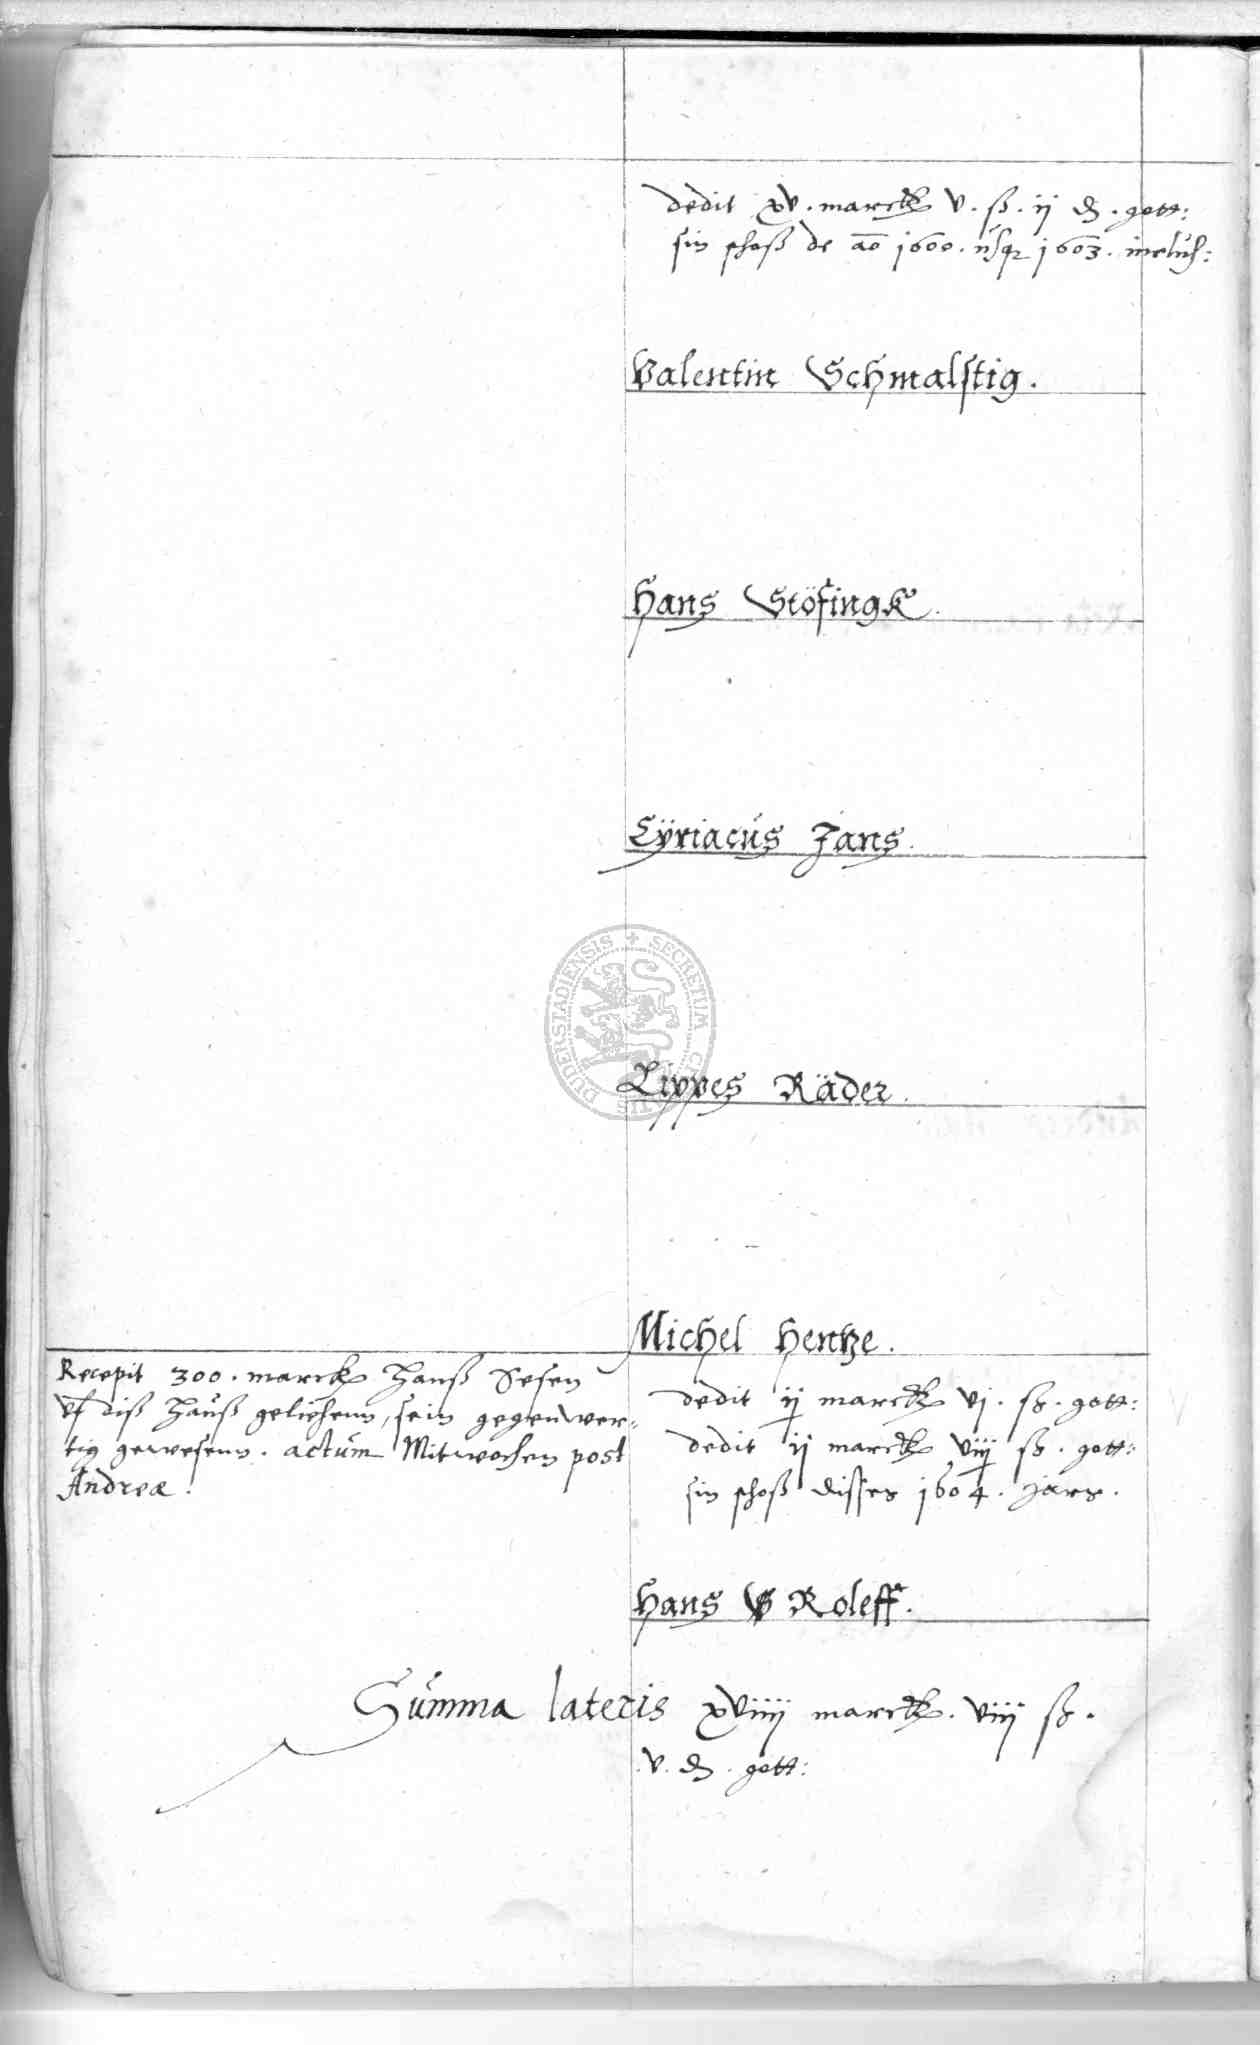 dedit xv. marck v. ß. ij ₰. gott:
sin schoß de ao 1600. usq 1603. inclus:
Valentin Schmalstig.
Hans Stöfingk.
Cÿriacus Jans.
Lippes Räder.
Michel Hentze.
Recepit 300. marck Hanß Sesen
uf diß Hauß geliehenn, sein gegenwer=
tig gewesenn. actum Mitwochen post
Andreæ.
dedit ij marck vj. ß. gott:
dedit ij marck viij ß. gott:
sin schoß disses 1604. Jars.
Hans Roleff.
Summa lateris xviiij marck. viij ß.
v. ₰. gott:
SECRETUM CIVITATIS DUDERSTADIENSIS